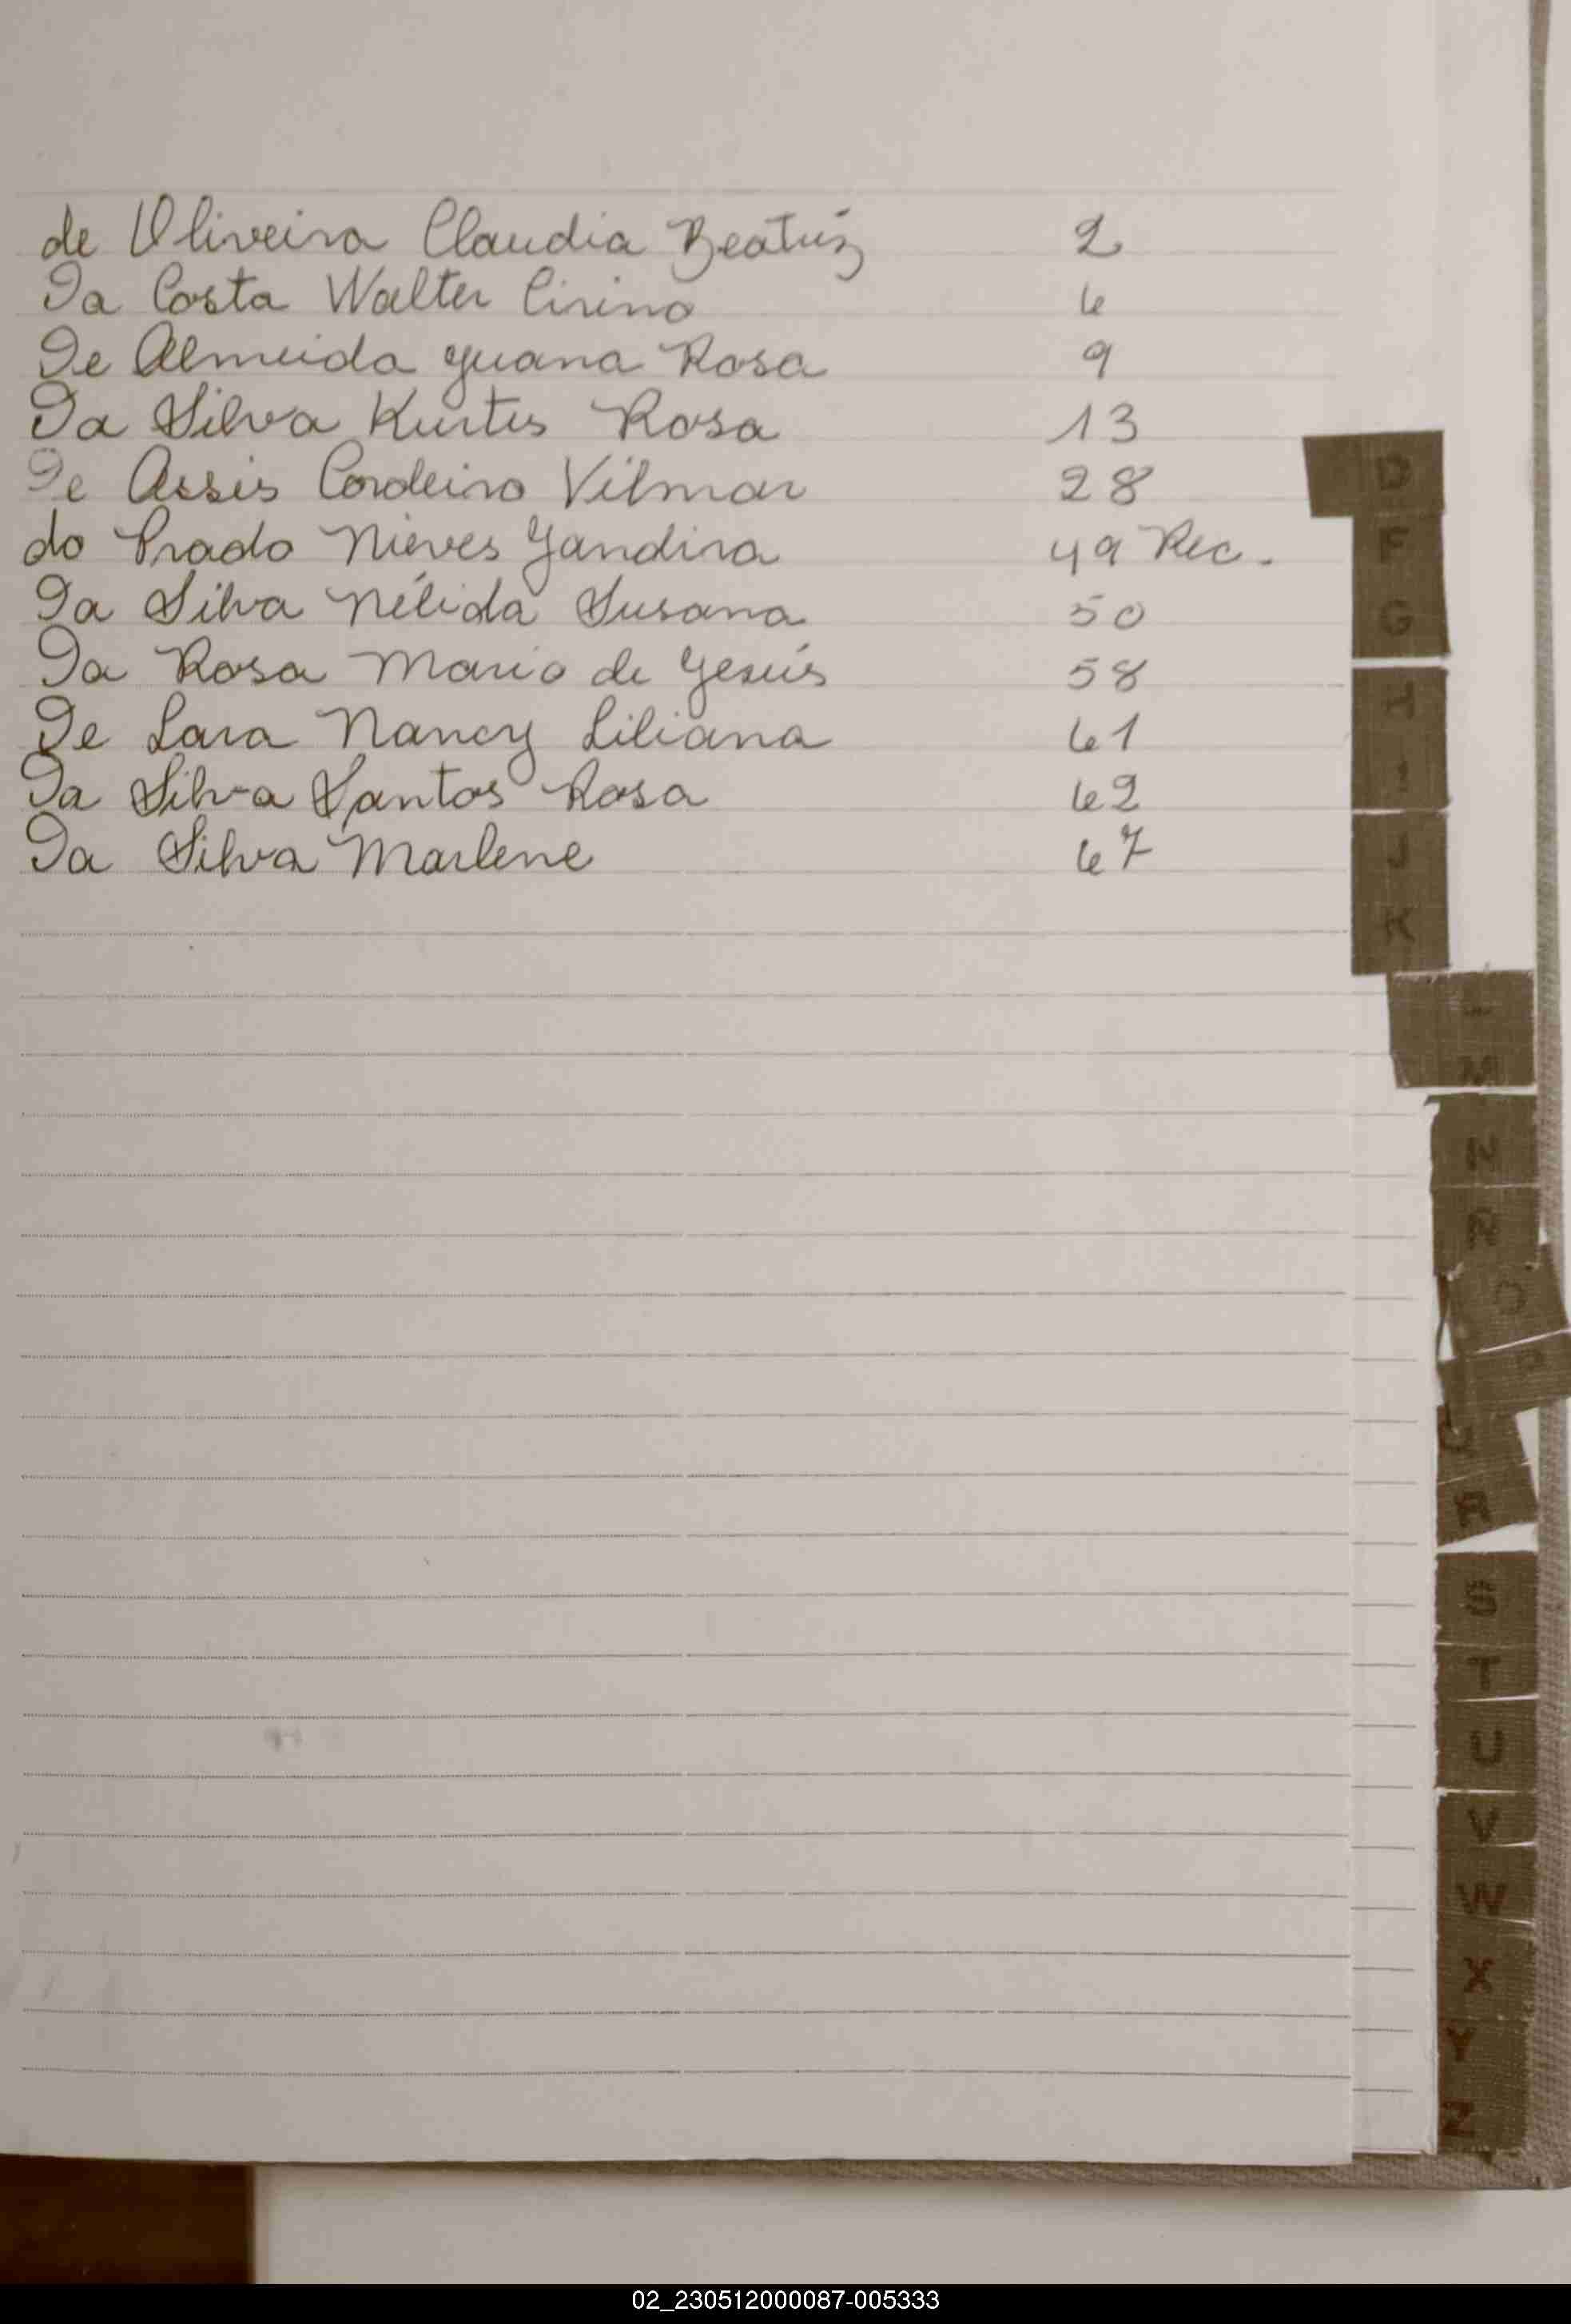 de Oliveira Claudia Beatriz 2
Da Costa Walter Cirino 6
De Almeida Juana Rosa 9
Da Silva Kurtis Rosa 13
De Assis Cordeiro Vilmar 28
do Prado Nieves Jandira 49 Rec.
Da Silva Nélida Susana 50
Da Rosa Mario de Jesús 58
De Lara Nancy Liliana 61
Da Silva Santos Rosa 62
Da Silva Marlene 67
D
F
G
H
I
J
K
L
M
N
Ñ
O
P
Q
R
S
T
U
V
W
X
Y
Z
02_230512000087-005333